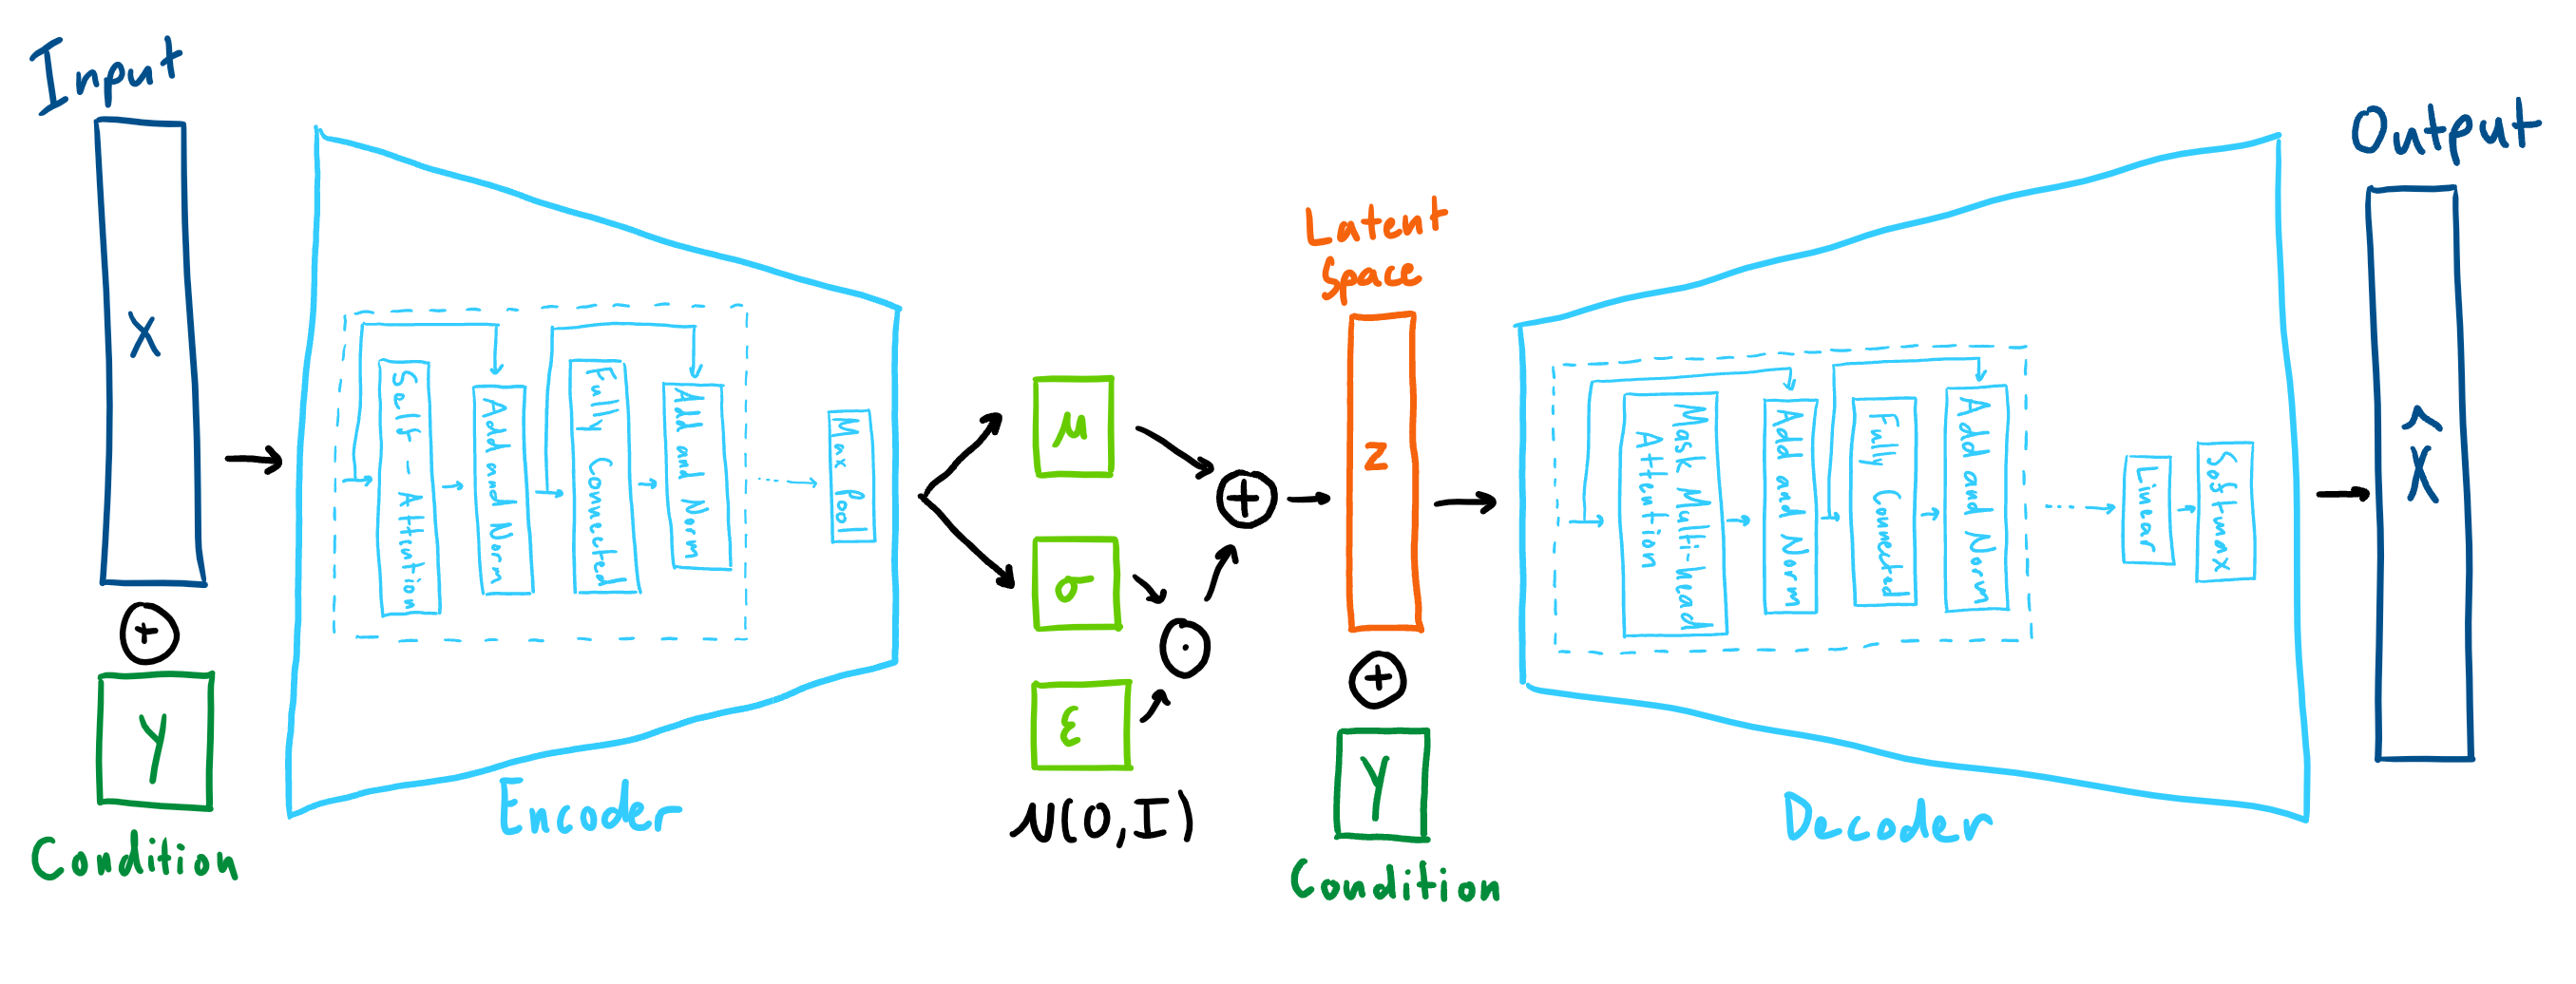 Input
X
+
Y
Condition
Self-Attention
Add and Norm
Fully Connected
Add and Norm
Max Pool
Encoder
μ
σ
ε
N(0,I)
·
+
Latent
Space
z
+
Y
Condition
Mask Multi-head
Attention
Add and Norm
Fully Connected
Add and Norm
Linear
Softmax
Decoder
Output
X̂